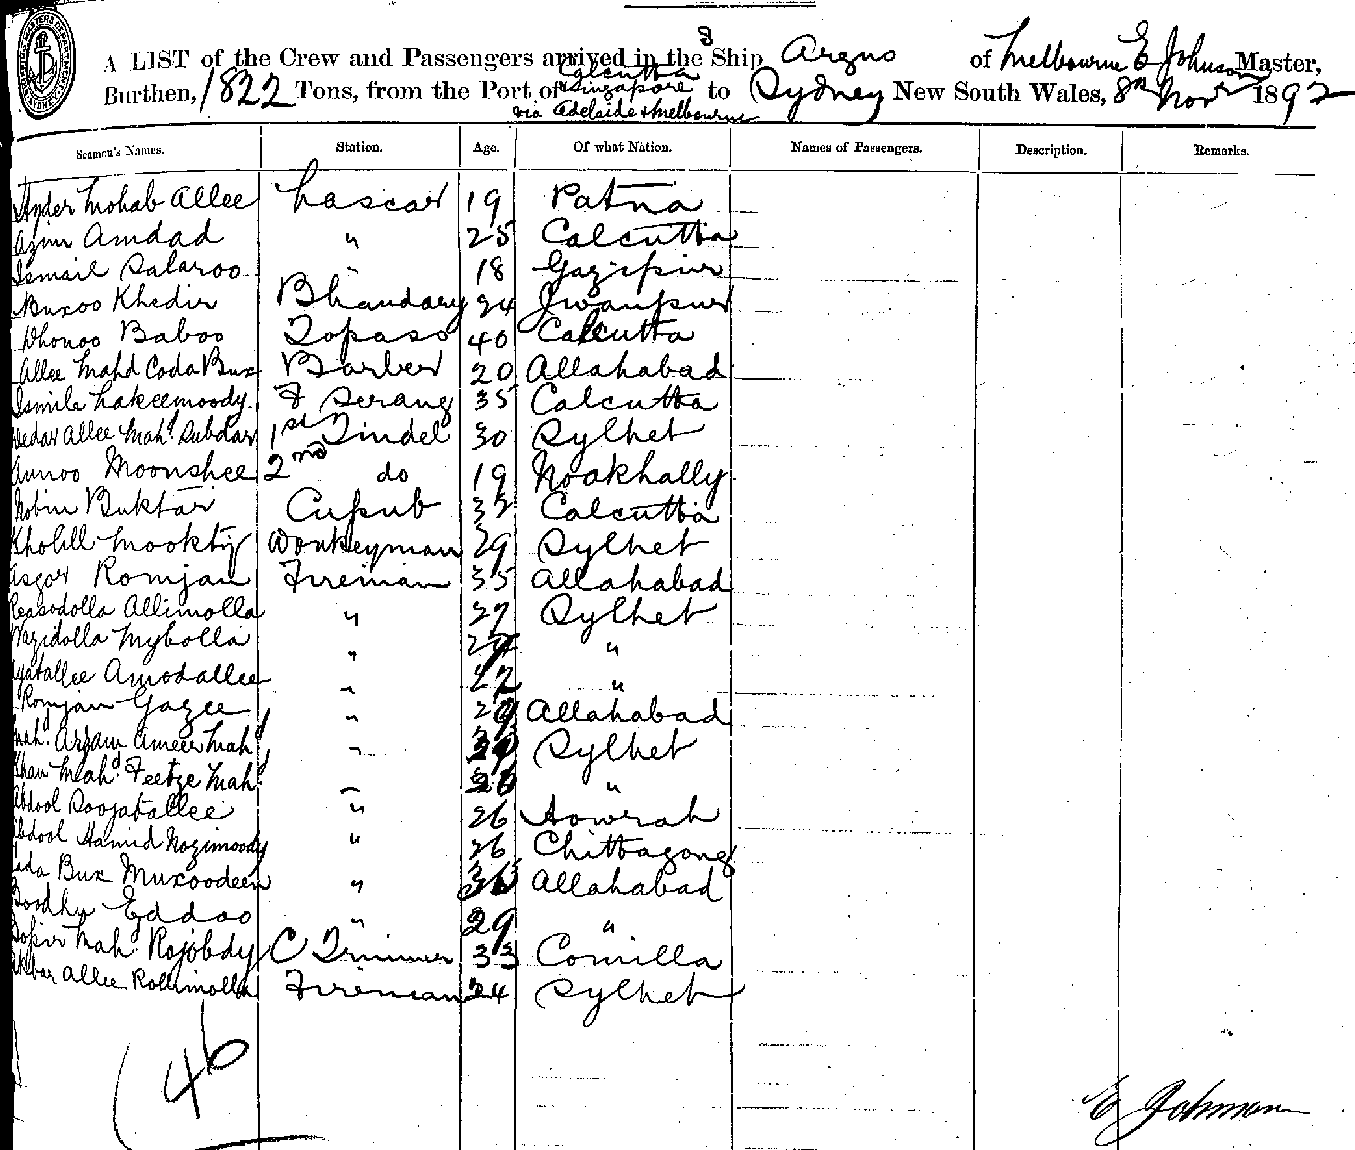 A LIST of the Crew and Passengers arrived in the S Ship Argus of Melbourne E Johnson Master,
Calcutta
Burthen, 1822 Tons, from the Port of Singapore to Sydney New South Wales, 8th Novr 1892
via Adelaide & Melbourne
Seamen's Names. Station. Age. Of what Nation. Names of Passengers. Description. Remarks.
Hyder Mohab Allee Lascar 19 Patna
Azim Amdad " 25 Calcutta
Ismail Salaroo " 18 Gazipur
Buxoo Khedir Bhandary 24 Jwanpur
Dhonoo Baboo Topass 40 Calcutta
Allee Mahd Coda Bux Barber 20 Allahabad
Ismile Lakeemoody F Serang 35 Calcutta
Allee Mahd Subdar 1st Tindel 30 Sylhet
Moonshee 2nd do 19 Noakhally
Robin Buktar Cussub 32 Calcutta
Kholill Mookty Donkeyman 29 Sylhet
Asgor Romjan Fireman 35 Allahabad
Reasodolla Allimolla " 27 Sylhet
Wazidolla Mybolla " "
Amodallee " 22 "
Romjan Gazee " 29 Allahabad
Mahd Arjan Ameer Mahd " Sylhet
Khan Mahd Feetze Mahd " "
Abdool Soojatallee " 26 Howrah
Abdool Hamid Nozimoody " 26 Chittagong
Bux Muxoodeen " Allahabad
Boodhu Eddoo " 29 "
Mah Rojobdy C Trimmer 33 Comilla
Akbar Allee Rollimolla Fireman 24 Sylhet
46
E Johnson